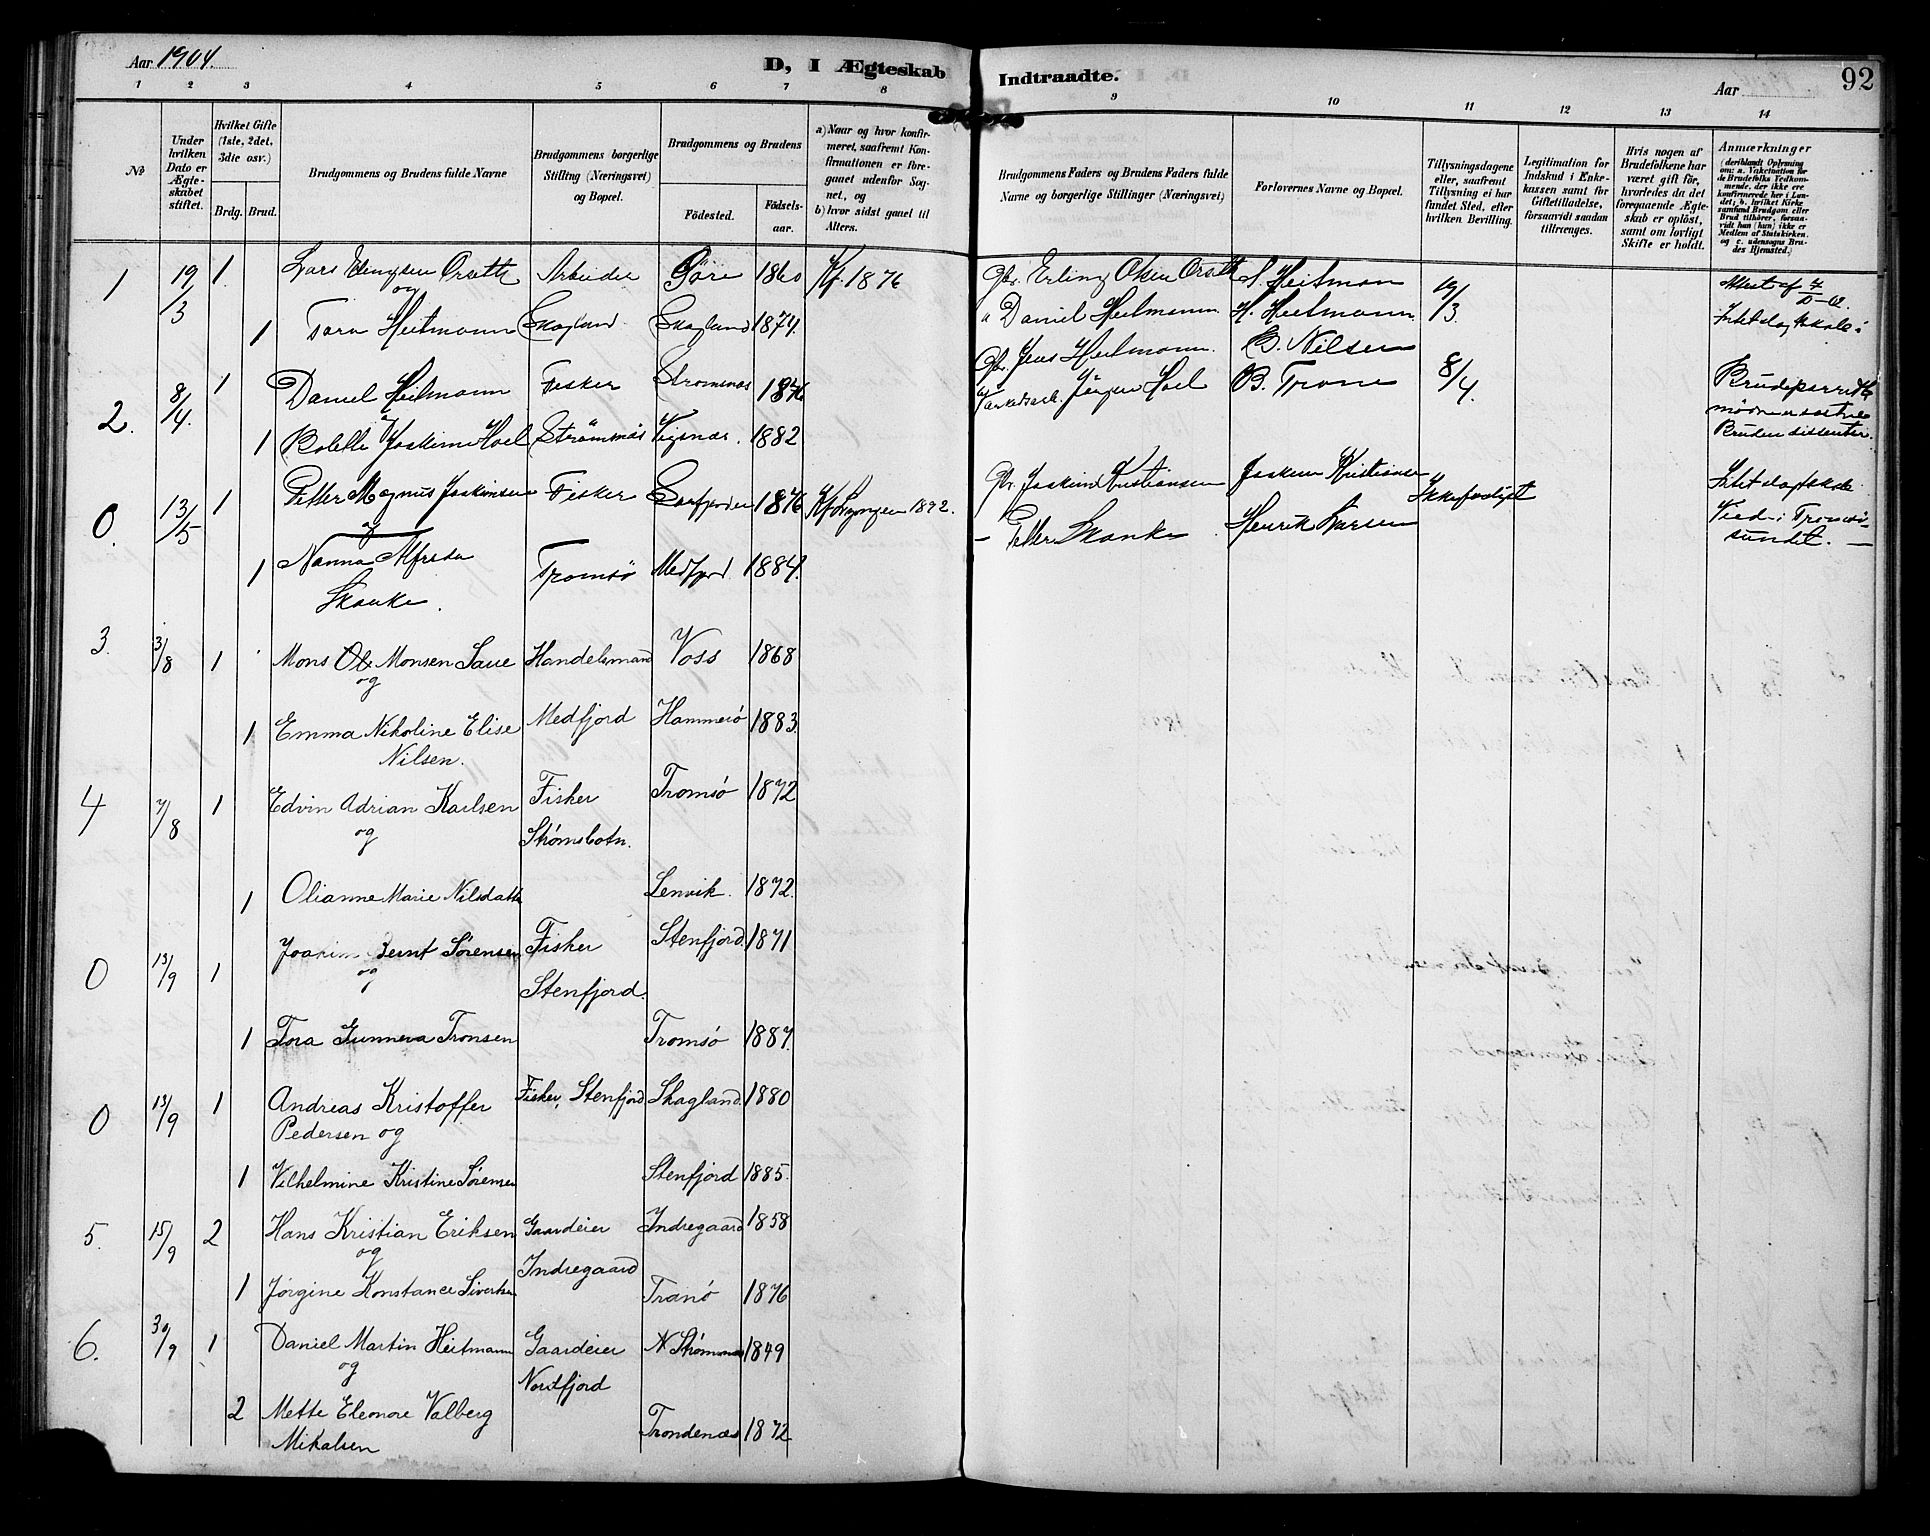 Aar 1904.
D, I Ægteskab Indtraadte.
Aar
92
1 2 3 4 5 6 7 8 9 10 11 12 13 14
No
Under hvilken Dato er Ægteskabet stiftet.
Hvilket Gifte (1ste, 2det, 3die osv.)
Brdg. Brud.
Brudgommens og Brudens fulde Navne
Brudgommens borgerlige Stilling (Næringsvei) og Bopæl.
Brudgommens og Brudens
Födested.
Födsels-aar.
a) Naar og hvor konfirmeret, saafremt Konfirmationen er foregaaet udenfor Sognet, og
b) hvor sidst gaaet til Alters.
Brudgommens Faders og Brudens Faders fulde Navne og borgerlige Stillinger (Næringsvei)
Forlovernes Navne og Bopæl.
Tillysningsdagene eller, saafremt Tillysning ei har fundet Sted, efter hvilken Bevilling.
Legitimation for Indskud i Enkekassen samt for Giftetilladelse, forsaavidt saadan tiltrænges.
Hvis nogen af Brudefolkene har været gift för, hvorledes da det foregaaende Ægteskab er oplöst, samt om lovligt Skifte er holdt.
Anmærkninger
(deriblandt Oplysning om: a. Vakcination for de Brudefolks Vedkommende, der ikke ere konfirmerede her i Landet; b. hvilket Kirkesamfund Brudgom eller Brud tilhörer, forsaavidt han (hun) ikke er Medlem af Statskirken, og c. udensogns Brudes Hjemsted.)
1 19/3 1 Lars Arbeider 1860 Kf. 1876 Gbr. Erling Olsen Heitman 19/3 Attest af
og
1 Heitmann Skagland Skagland 1874. Daniel Heitmann H. Heitmann
2. 8/4. 1 Daniel Heitmann Fisker Stromsnes 1876 Gbr. Jens Heitmann. B. Nilsen 8/4.
Jörgen Hoel B.
1 Bolette Joakime Hoel Strömsnæs 1882 Bruden dissenter.
0. 13/5 1 Petter Magnus Joakimsen Fisker 1876 Kf. Lyngen 1892. Gbr. Joakim Kristiansen Joakim Kristiansen
og
1 Nanna Alfreda Tromsö Medfjord 1884. Petter Skanke Henrik Larsen Viet i Tromsösundet.
Skanke.
3. 3/8 1 Mons Monsen Saue Handelsmand Voss 1868
og
1 Emma Nikoline Elise Medfjord Hammerö 1883.
Nilsen.
4 7/8 1 Edvin Adrian Karlsen Fisker Tromsø 1872
og Strømsbotn.
1 Olianne Marie Nilsdatter Lenvik. 1872.
0 13/9 1 Joakim Bernt Sørensen Fisker Stenfjord. 1871
og Stenfjord.
1 Tora Gunneva Tronsen Tromsø 1887.
0 13/9 1 Andreas Kristoffer Fisker, Stenfjord Skagland. 1880
Pedersen og
1 Vilhelmine Kristine Sørensen Stenfjord 1885.
5. 15/9 2 Hans Kristian Eriksen Gaardeier Indregaard 1858
og Indregaard
1 Jørgine Konstance Sivertsen Tranø 1876
6. 30/9 1 Daniel Martin Heitmann Gaardeier N Strømsnes 1849
og Nordfjord
2 Mette Eleonore Valberg Trondenæs 1872
Mikalsen